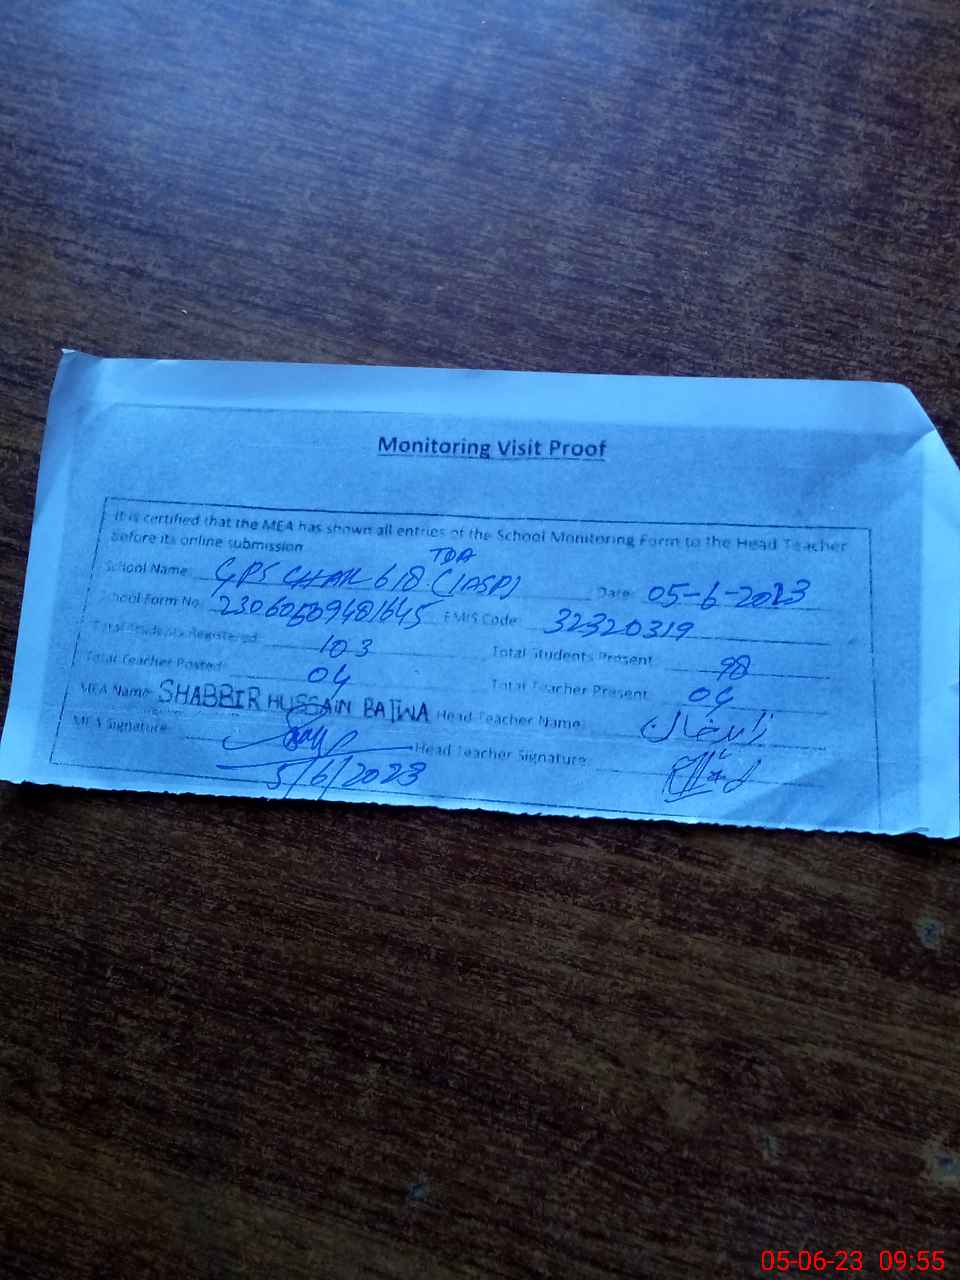 Monitoring Visit Proof
It is certified that the MEA has shown all entries of the School Monitoring Form to the Head Teacher
before its online submission
School Name: GPS CHAK 618 TDA (IASP) Date: 05-6-2023
School Form No: EMIS Code: 32320319
Total Students Registered: 103 Total Students Present: 98
Total Teacher Posted: 04 Total Teacher Present: 04
MEA Name: SHABBIR HUSSAIN BAJWA Head Teacher Name:
MEA Signature: Head Teacher Signature:
5/6/2023
05-06-23 09:55